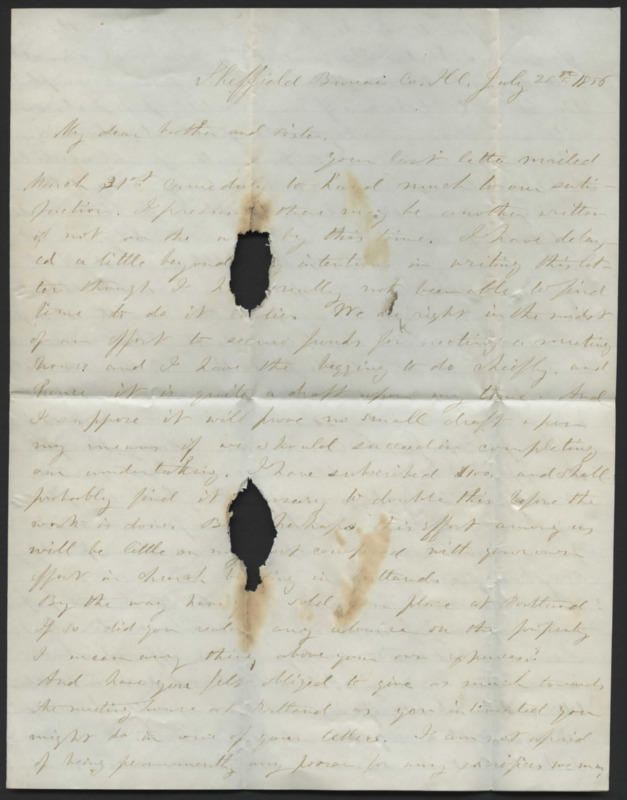 Sheffield Bureau Co. Ill. July 20th 1856
My dear brother and sister,
Your last letter mailed
March 21st came duly to hand much to our satis-
faction. I presume there may be another written
if not on the by this time. I have delay-
ed a little beyond intention in writing this let-
ter though I really not been able to find
time to do it We are right in the midst
of an effort to secure funds for erecting a meeting
house and I have the begging to do chiefly, and
hence it is quite a draft upon my time. And
I suppose it will prove no small draft upon
my means if we should succeed in completing
our undertaking. I have subscribed and shall
probably find it to double this before the
work is done. perhaps this effort among us
will be little or with your own
effort in church in
By the way have sold place at
If so did you any advance on the property
I mean any thing above your own expenses?
And have you felt obliged to give as much towards
the meeting house at as you intimated you
might do in one of your letters. I am not afraid
of being permanently any poorer for any sacrifices we may